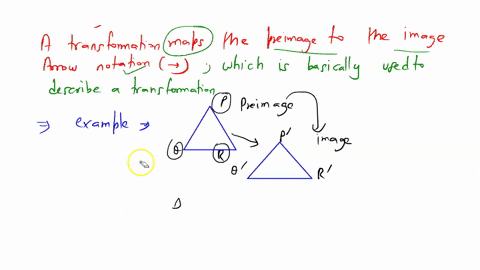 A transformation maps the preimage to the image
Arrow notation (→) ; which is basically used to
describe a transformation
⇒ example →
P Preimage
image
P'
Q R
Q' R'
Δ